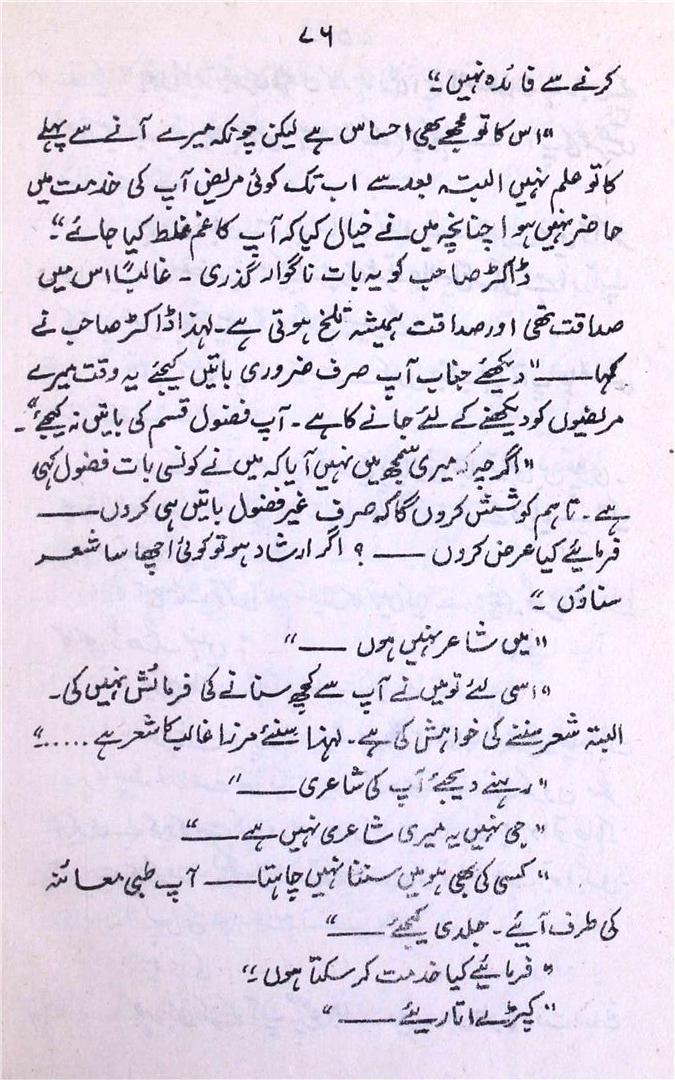 ۷۶
کرنے سے فائدہ نہیں"
"اس کا تو مجھے بھی احساس ہے لیکن چونکہ میرے آنے سے پہلے
کا تو علم نہیں البتہ بعد سے اب تک کوئی مریض آپ کی خدمت میں
حاضر نہیں ہوا چنانچہ میں نے خیال کیا کہ آپ کا غم غلط کیا جائے"۔
ڈاکٹر صاحب کو یہ بات ناگوار گذری۔ غالباً اس میں
صداقت تھی اور صداقت ہمیشہ تلخ ہوتی ہے۔ لہذا ڈاکٹر صاحب نے
کہا —— "دیکھئے جناب آپ صرف ضروری باتیں کیجئے یہ وقت میرے
مریضوں کو دیکھنے کے لئے جانے کا ہے۔ آپ فضول قسم کی باتیں نہ کیجئے"۔
"اگرچہ کہ میری سمجھ میں نہیں آیا کہ میں نے کونسی بات فضول کہی
ہے۔ تاہم کوشش کروں گا کہ صرف غیر فضول باتیں ہی کروں ——
فرمایئے کیا عرض کروں —— ؟ اگر ارشاد ہو تو کوئی اچھا سا شعر
سناؤں"
"میں شاعر نہیں ہوں ——"
"اسی لئے تو میں نے آپ سے کچھ سنانے کی فرمائش نہیں کی۔
البتہ شعر سننے کی خواہش کی ہے۔ لہذا سنئے مرزا غالب کا شعر ہے ....."
"رہنے دیجئے آپ کی شاعری ——"
"جی نہیں یہ میری شاعری نہیں ہے ——"
"کسی کی بھی ہو میں سننا نہیں چاہتا —— آپ طبی معائنہ
کی طرف آیئے۔ جلدی کیجئے ——"
"فرمایئے کیا خدمت کر سکتا ہوں"
"کپڑے اتاریئے ——"